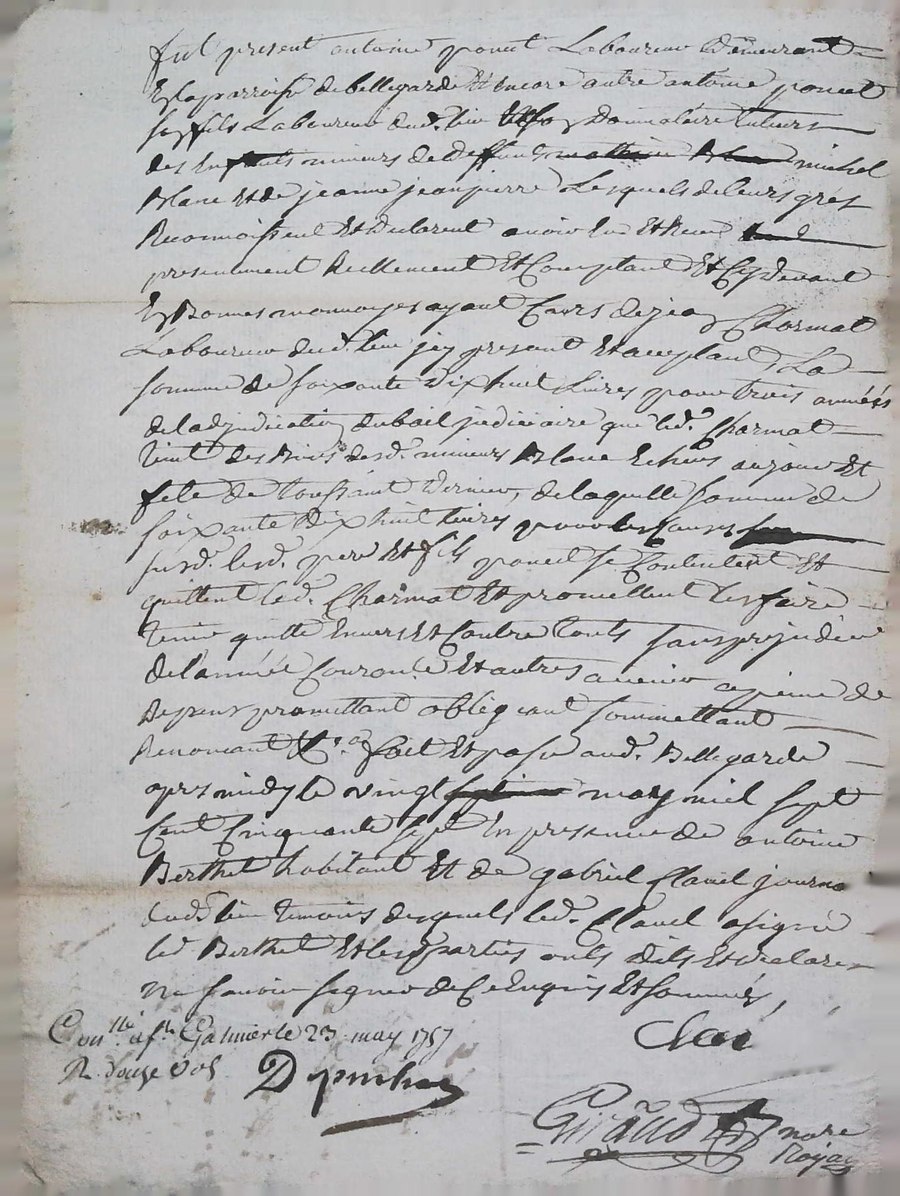 fut present antoine poncet Laboureur demeurant
En la parroisse de bellegarde Et Encore autre antoine poncet
son fils Laboureur dud. lieu Donnataire tuteurs
des Enfants mineurs de deffunt michel
Blanc Et de jeanne jeanpierre Lesquels de leurs grés
Reconnoissent Et declarent avoir Eu Et Receu
presentement Reellement Et Comptant Et Cy devant
En Bonnes monnoyes ayant Cours de jean Charmat
Laboureur dud. lieu jcy present Et acceptant La
somme de soixante dix huit Livres pour trois années
de ladjudication du bail judiciaire que led. Charmat
tient des Biens desd. mineurs Blanc Echus au jour Et
fete de toussaint dernier, de laquelle somme de
soixante dix huit livres pour les Causes
susd. lesd. pere Et fils poncet se Contentent Et
quittent led. Charmat Et promettent les faire
tenir quitte Envers Et Contre touts sans prejudice
de l'année Courante Et autres a venir a peine de
depens promettant obligeant sommettant
Renoncant &.a fait Et passé aud. Bellegarde
apres midy le vingt may mil sept
Cent Cinquante sept En presence de antoine
Berthet habitant Et de gabriel Clavel journ
dud. lieu temoins desquels led. Clavel a signé
led Berthet Et lesd parties onts dits Et declare
ne savoir signer de Ce Enquis Et sommés,
Con.lle a s.t Galmier le 23 may 1757
R. douze sols
Giraud no.re
Royal